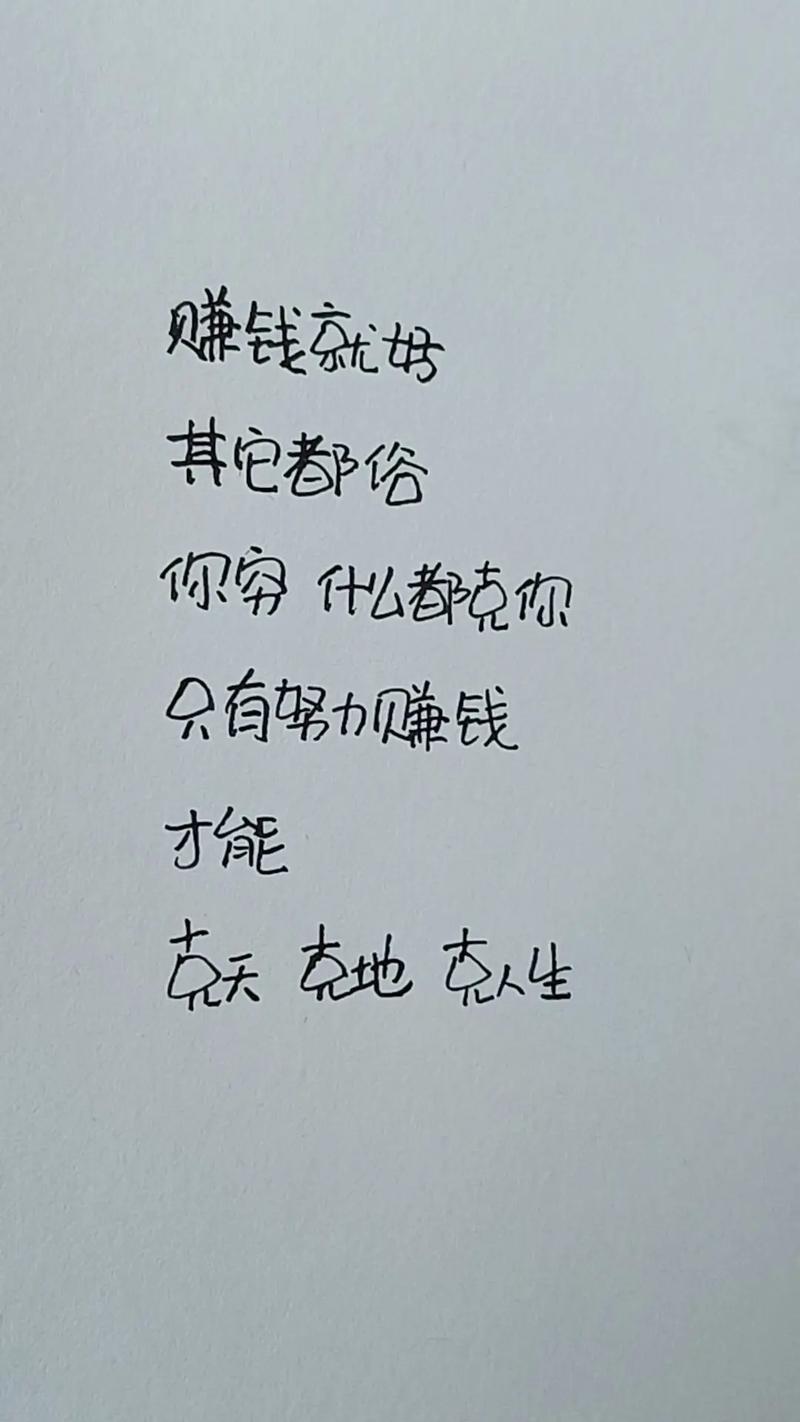 赚钱就好
其它都俗
你穷 什么都克你
只有努力赚钱
才能
克天 克地 克人生